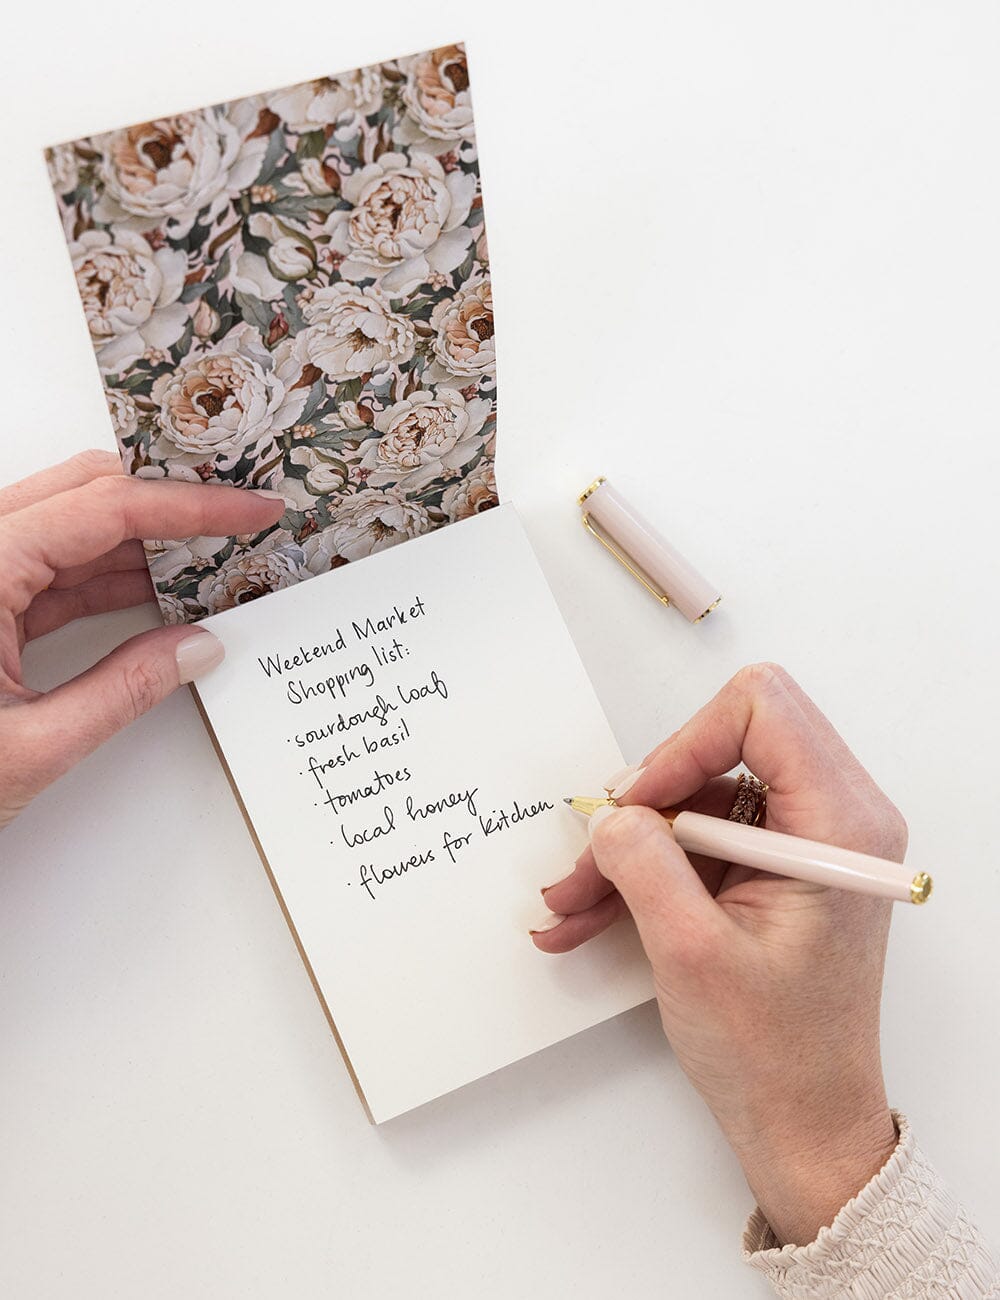 Weekend Market
Shopping list:
· sourdough loaf
· fresh basil
· tomatoes
· local honey
· flowers for kitchen